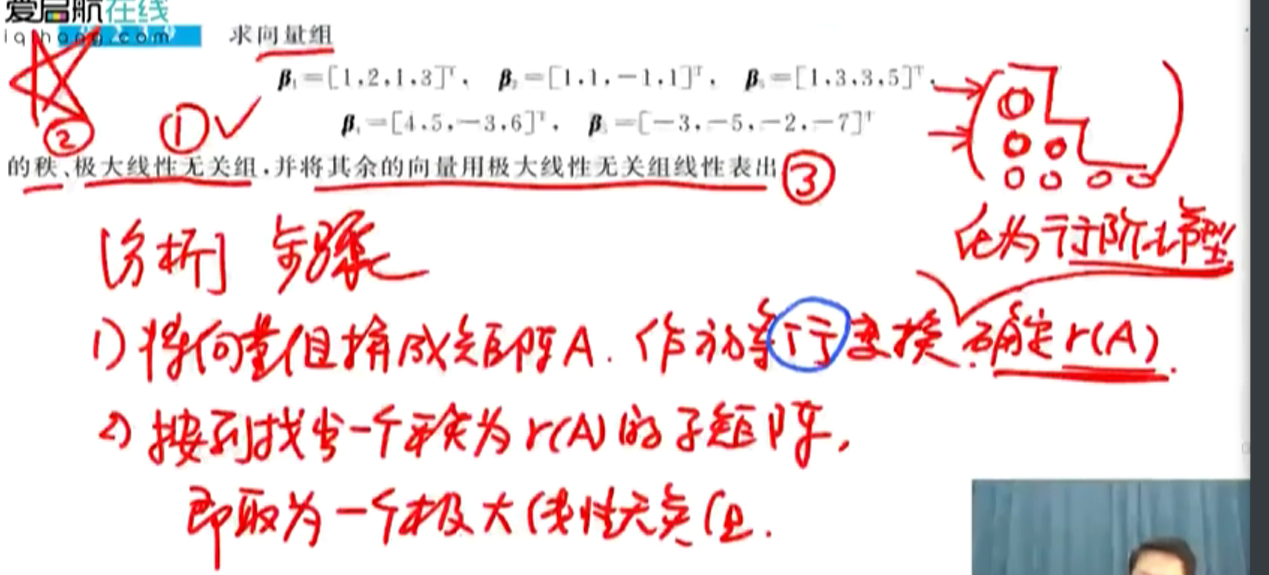 爱启航在线
iqihang.com
求向量组
β₁=[1,2,1,3]ᵀ, β₂=[1,1,-1,1]ᵀ, β₃=[1,3,3,5]ᵀ,
β₄=[4,5,-3,6]ᵀ, β₅=[-3,-5,-2,-7]ᵀ
② ①✓
的秩、极大线性无关组,并将其余的向量用极大线性无关组线性表出 ③
化为行阶梯型
[分析] 步骤
1) 将向量组拼成矩阵A. 作初等行变换. 确定r(A).
2) 按列找出一个秩为r(A)的子矩阵,
即取为一个极大线性无关组.